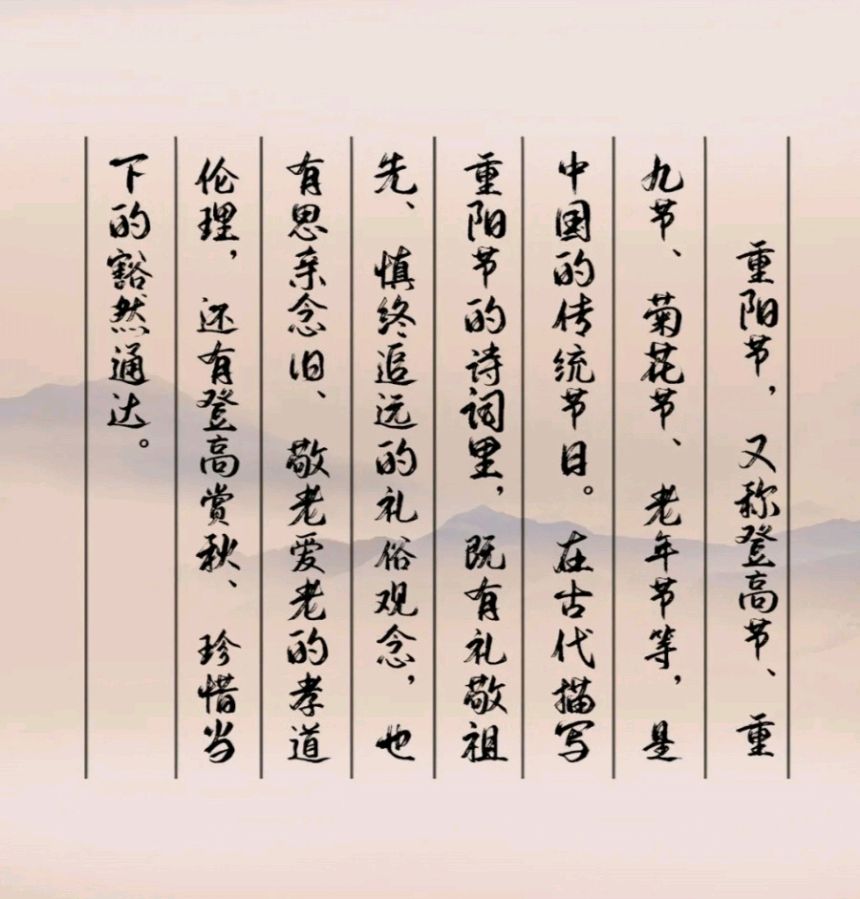 重阳节，又称登高节、重
九节、菊花节、老年节等，是
中国的传统节日。在古代描写
重阳节的诗词里，既有礼敬祖
先、慎终追远的礼俗观念，也
有思亲念旧、敬老爱老的孝道
伦理，还有登高赏秋、珍惜当
下的豁然通达。